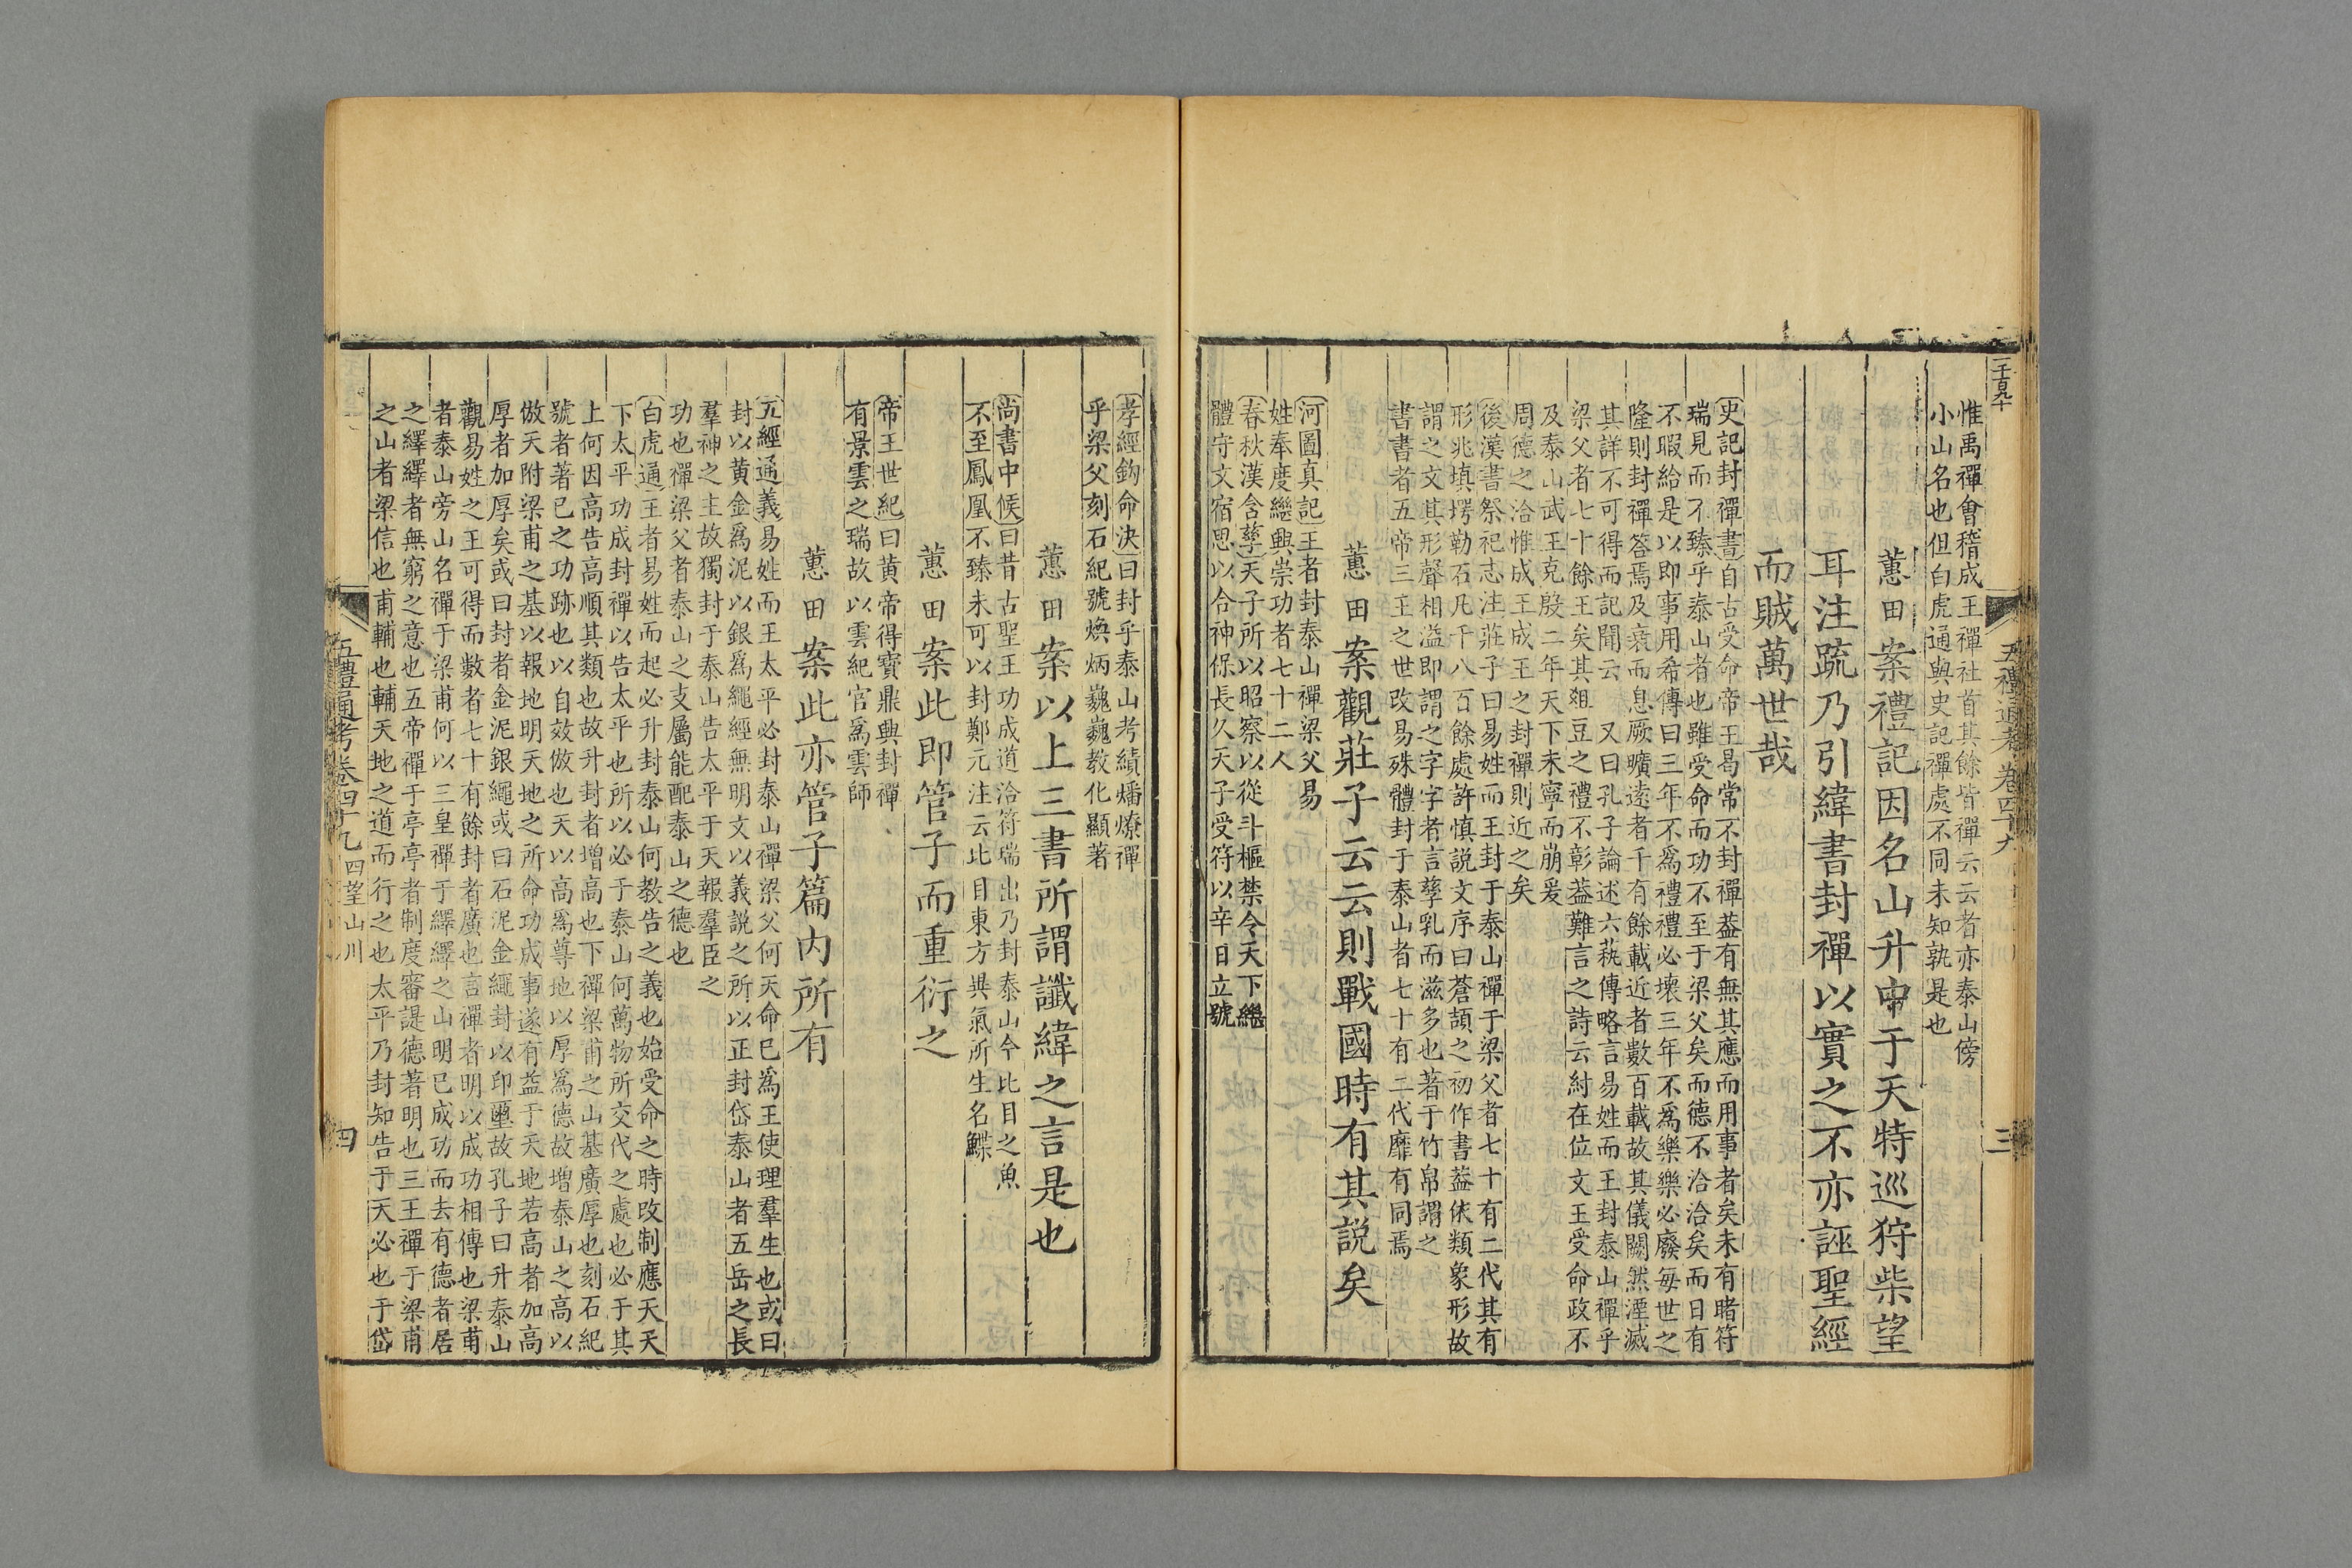 惟禹禪會稽成王禪社首其餘皆禪云云者亦泰山傍
小山名也但白虎通與史記禪處不同未知孰是也
蕙田案禮記因名山升中于天特巡狩柴望
耳注疏乃引緯書封禪以實之不亦誣聖經
而賊萬世哉
史記封禪書自古受命帝王曷常不封禪葢有無其應而用事者矣未有睹符
瑞見而不臻乎泰山者也雖受命而功不至于梁父矣而德不洽洽矣而日有
不暇給是以即事用希傳曰三年不爲禮禮必壞三年不爲樂樂必廢每世之
隆則封禪答焉及衰而息厥曠逺者千有餘載近者數百載故其儀闕然湮滅
其詳不可得而記聞云 又曰孔子論述六蓺傳略言易姓而王封泰山禪乎
梁父者七十餘王矣其俎豆之禮不彰葢難言之詩云紂在位文王受命政不
及泰山武王克殷二年天下未寧而崩爰
周德之洽惟成王成王之封禪則近之矣
後漢書祭祀志注莊子曰易姓而王封于泰山禪于梁父者七十有二代其有
形兆填堮勒石凡千八百餘處許慎説文序曰蒼頡之初作書葢依類象形故
謂之文其形聲相溢即謂之字字者言孳乳而滋多也著于竹帛謂之
書書者五帝三王之世改易殊體封于泰山者七十有二代靡有同焉
蕙田案觀莊子云云則戰國時有其説矣
河圖真記王者封泰山禪梁父易
姓奉度繼興崇功者七十二人
春秋漢含孳天子所以昭察以從斗樞禁令天下繼
體守文宿思以合神保長久天子受符以辛日立號
五禮通考卷四十九
三
孝經鈎命決曰封乎泰山考績燔燎禪
乎梁父刻石紀號煥炳巍巍教化顯著
蕙田案以上三書所謂讖緯之言是也
尚書中候曰昔古聖王功成道洽符瑞出乃封泰山今比目之魚
不至鳳凰不臻未可以封鄭元注云比目東方異氣所生名鰈
蕙田案此即管子而重衍之
帝王世紀曰黃帝得寶鼎興封禪
有景雲之瑞故以雲紀官爲雲師
蕙田案此亦管子篇内所有
五經通義易姓而王太平必封泰山禪梁父何天命已爲王使理羣生也或曰
封以黄金爲泥以銀爲繩經無明文以義説之所以正封岱泰山者五岳之長
羣神之主故獨封于泰山告太平于天報羣臣之
功也禪梁父者泰山之支屬能配泰山之德也
白虎通王者易姓而起必升封泰山何教告之義也始受命之時改制應天天
下太平功成封禪以告太平也所以必于泰山何萬物所交代之處也必于其
上何因高告高順其類也故升封者增高也下禪梁甫之山基廣厚也刻石紀
號者著已之功跡也以自效倣也天以高爲尊地以厚爲德故增泰山之高以
倣天附梁甫之基以報地明天地之所命功成事遂有益于天地若高者加高
厚者加厚矣或曰封者金泥銀繩或曰石泥金繩封以印璽故孔子曰升泰山
觀易姓之王可得而數者七十有餘封者廣也言禪者明以成功相傳也梁甫
者泰山旁山名禪于梁甫何以三皇禪于繹繹之山明已成功而去有德者居
之繹繹者無窮之意也五帝禪于亭亭者制度審諟德著明也三王禪于梁甫
之山者梁信也甫輔也輔天地之道而行之也太平乃封知告于天必也于岱
五禮通考卷四十九 四望山川
四